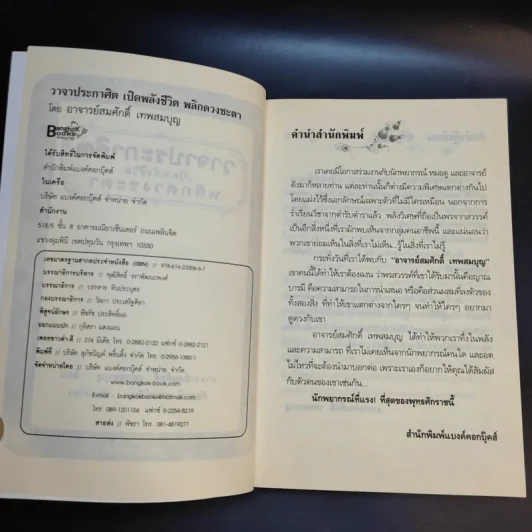 วาจาประกาศิต เปิดพลังชีวิต พลิกดวงชะตา
โดย อาจารย์สมศักดิ์ เทพสมบุญ
Bangkok
Books
ได้รับสิทธิ์ในการจัดพิมพ์
สำนักพิมพ์แบงค์คอกบุ๊คส์
ในเครือ
บริษัท แบงค์คอกบุ๊คส์ จำหน่าย จำกัด
สำนักงาน
518/5 ชั้น 8 อาคารมณียาเซ็นเตอร์ ถนนเพลินจิต
แขวงลุมพินี เขตปทุมวัน กรุงเทพฯ 10330
เลขมาตรฐานสากลประจำหนังสือ (ISBN) // 978-616-25306-6-7
บรรณาธิการบริหาร //
บรรณาธิการ // บรรหาร
กองบรรณาธิการ //
พิสูจน์อักษร //
ออกแบบปก //
เพลทขาวดำ-สี //
พิมพ์ที่ //
จัดจำหน่ายโดย // บริษัท แบงค์คอกบุ๊คส์ จำหน่าย จำกัด
www.bangkok-book.com
E-mail : bangkokbooks@hotmail.com
โทร. 089-1201156 แฟกซ์ 0-2254-8219
สายส่ง // พัชรา โทร. 081-4819277
คำนำสำนักพิมพ์
เราเคยมีโอกาสร่วมงานกับนักพยากรณ์ หมอดู และอาจารย์
ดังมาก็หลายท่าน แต่ละท่านนั้นก็ต่างมีความพิเศษแตกต่างกันไป
โดยแฝงไว้ซึ่งเอกลักษณ์เฉพาะตัวที่ไม่มีใครเหมือน นอกจากการ
ร่ำเรียนวิชาจากตำรับตำราแล้ว พลังวิเศษที่ถือเป็นพรจากสวรรค์
เป็นอีกสิ่งหนึ่งที่เรามักพบเห็นจากกลุ่มคนอาชีพนี้ และแน่นอนว่า
พวกเขาย่อมเห็นในสิ่งที่เราไม่เห็น...รู้ในสิ่งที่เราไม่รู้
กระทั่งวันที่เราได้พบกับ "อาจารย์สมศักดิ์ เทพสมบุญ"
เขาคนนี้ได้ทำให้เราต้องฉงน ว่าพรสวรรค์ที่เราได้รับมานั้นคือญาณ
บารมี คือความสามารถในการนำเสนอ หรือคือส่วนผสมที่ลงตัวของ
ทั้งสองสิ่ง ที่ทำให้เขาแตกต่างจากใครๆ จนทำให้ใครๆ อยากมา
ดูดวงกับเขา
อาจารย์สมศักดิ์ เทพสมบุญ ได้ทำให้พวกเราทึ่งในพลัง
และความสามารถ ที่เราไม่เคยเห็นจากนักพยากรณ์คนใด และอด
ไม่ไหวที่จะต้องนำมาบอกต่อ เพราะเราเองก็อยากให้คุณได้สัมผัส
กับตัวตนของเขาเช่นกัน...
นักพยากรณ์ที่แรง! ที่สุดของพุทธศักราชนี้
สำนักพิมพ์แบงค์คอกบุ๊คส์